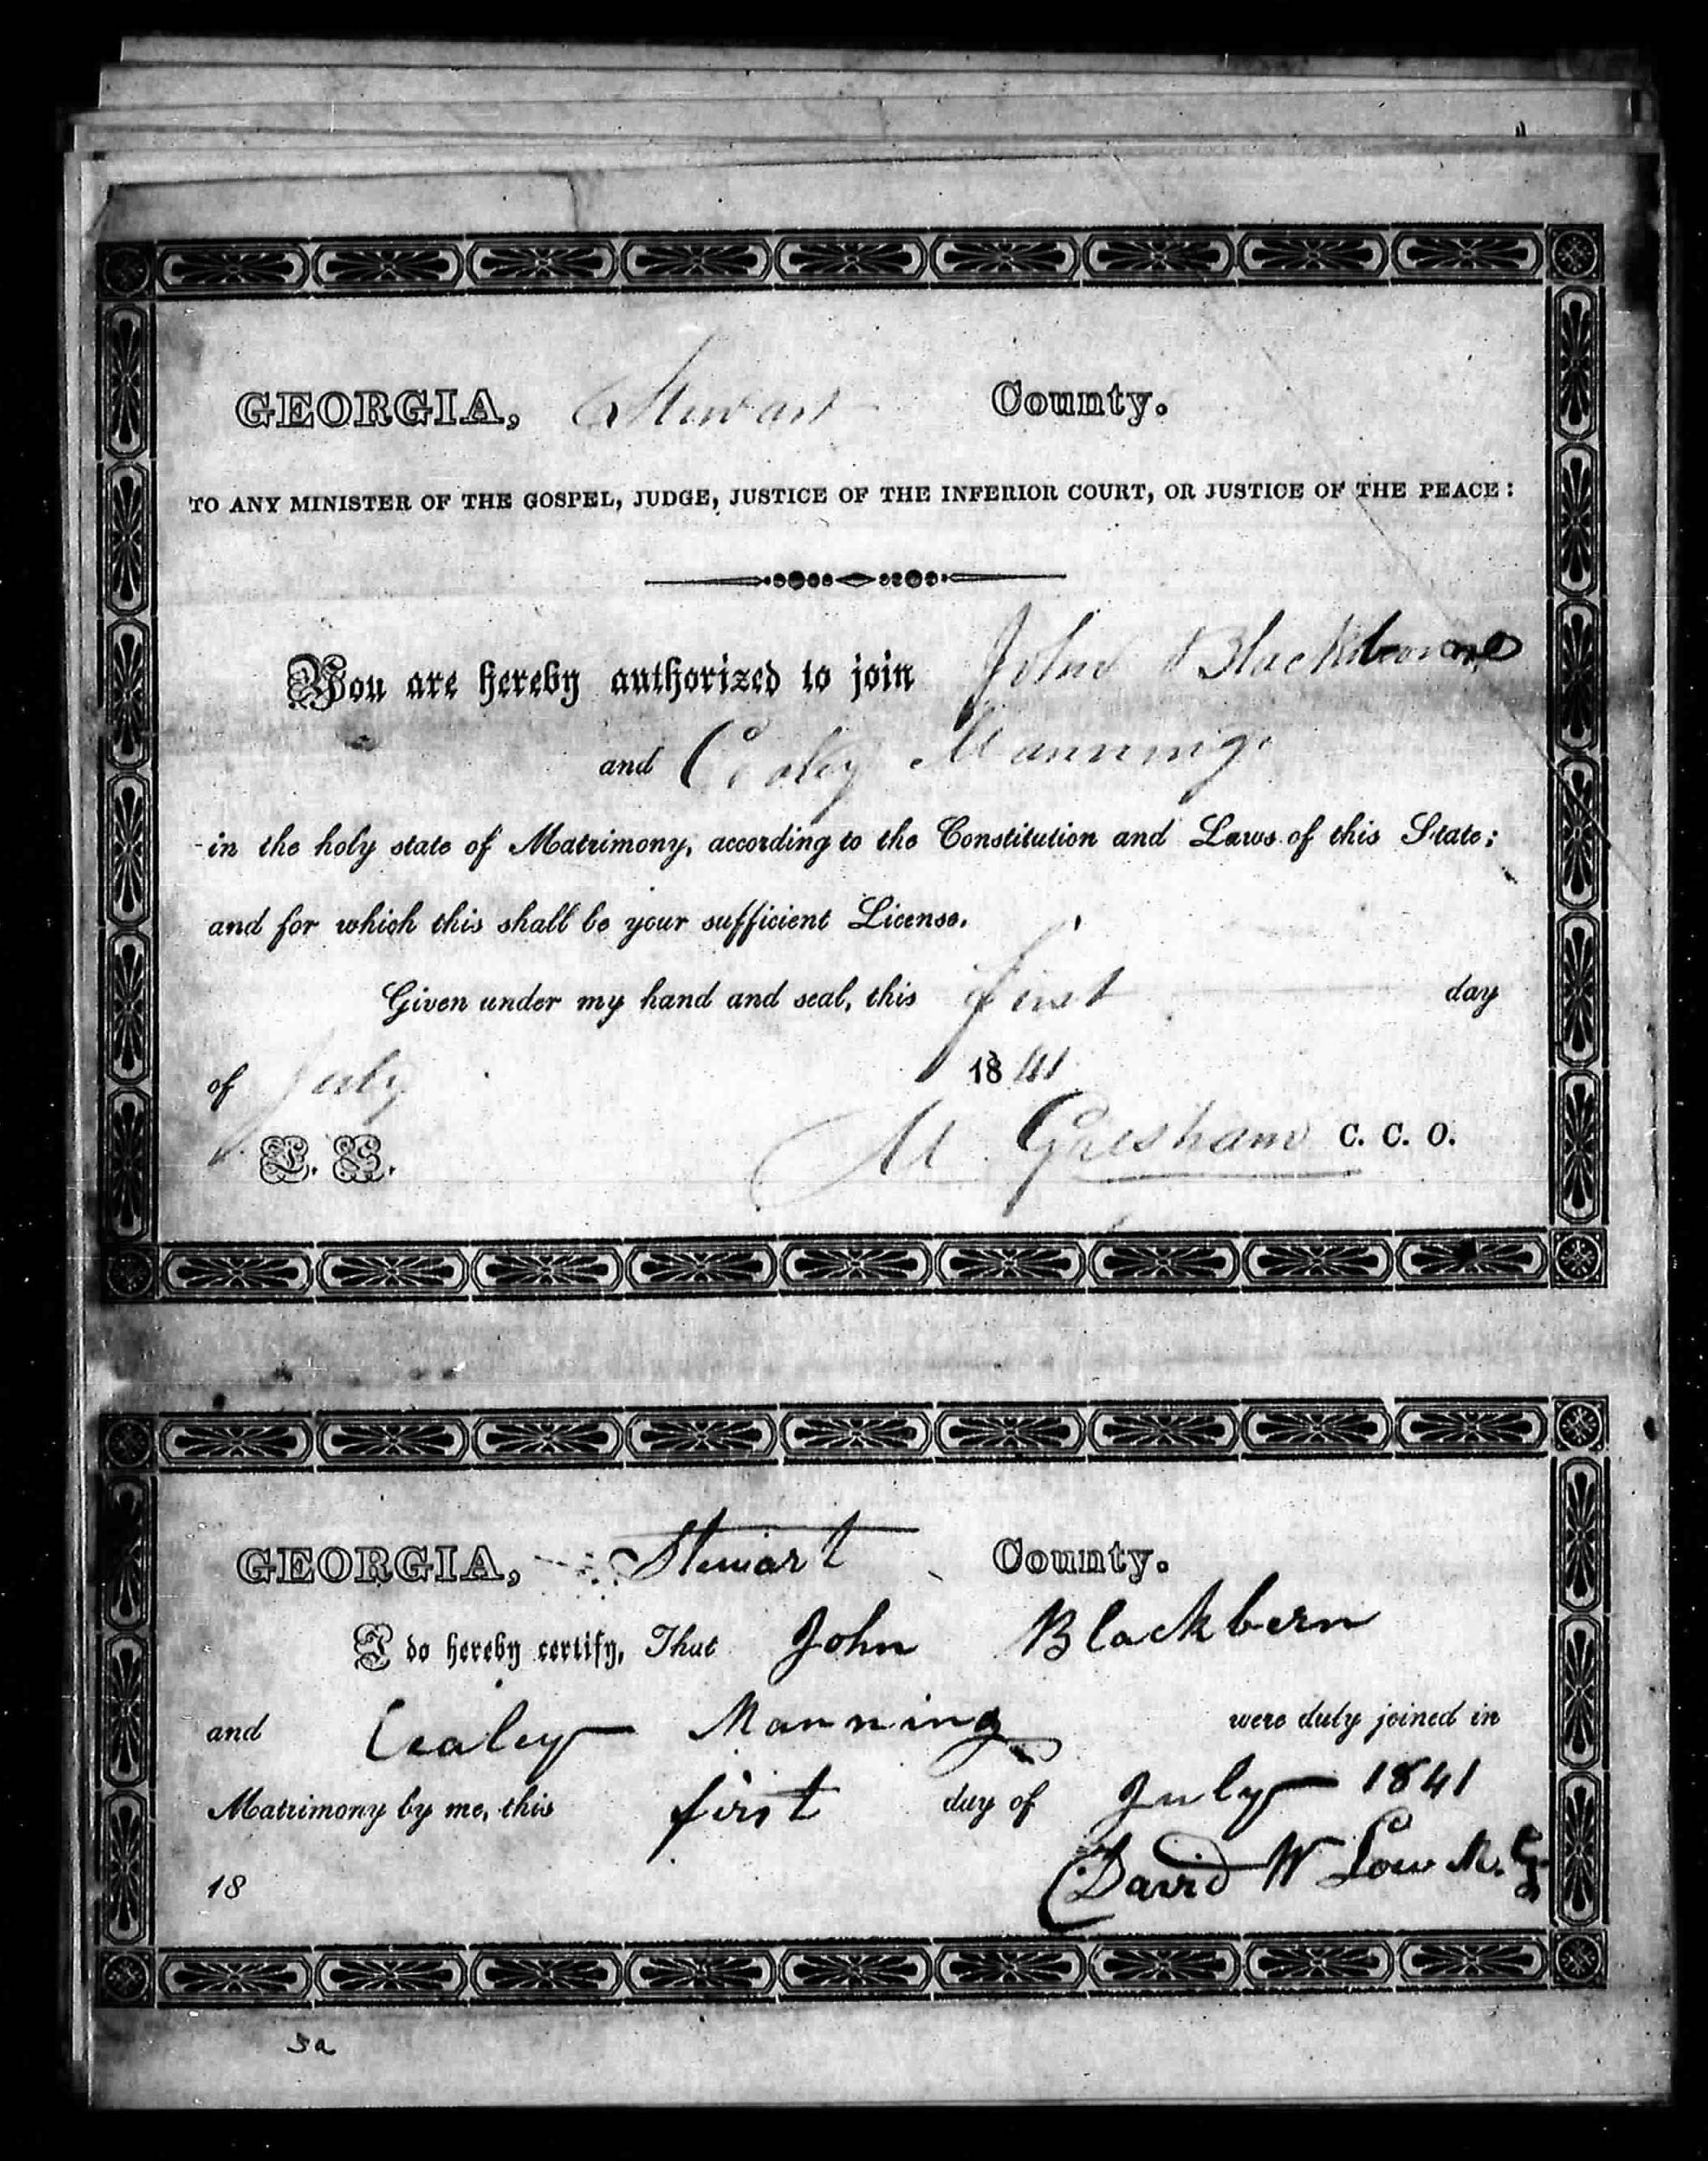 GEORGIA, Stewart County.
TO ANY MINISTER OF THE GOSPEL, JUDGE, JUSTICE OF THE INFERIOR COURT, OR JUSTICE OF THE PEACE:
You are hereby authorized to join John
and Cealey Manning
in the holy state of Matrimony, according to the Constitution and Laws of this State;
and for which this shall be your sufficient License.
Given under my hand and seal, this first day
of July 1841
L. S. M Gresham C. C. O.
GEORGIA, Stewart County.
I do hereby certify, That John Blackbern
and Cealey Manning were duly joined in
Matrimony by me, this first day of July 1841
18 David W Low M. G
3a